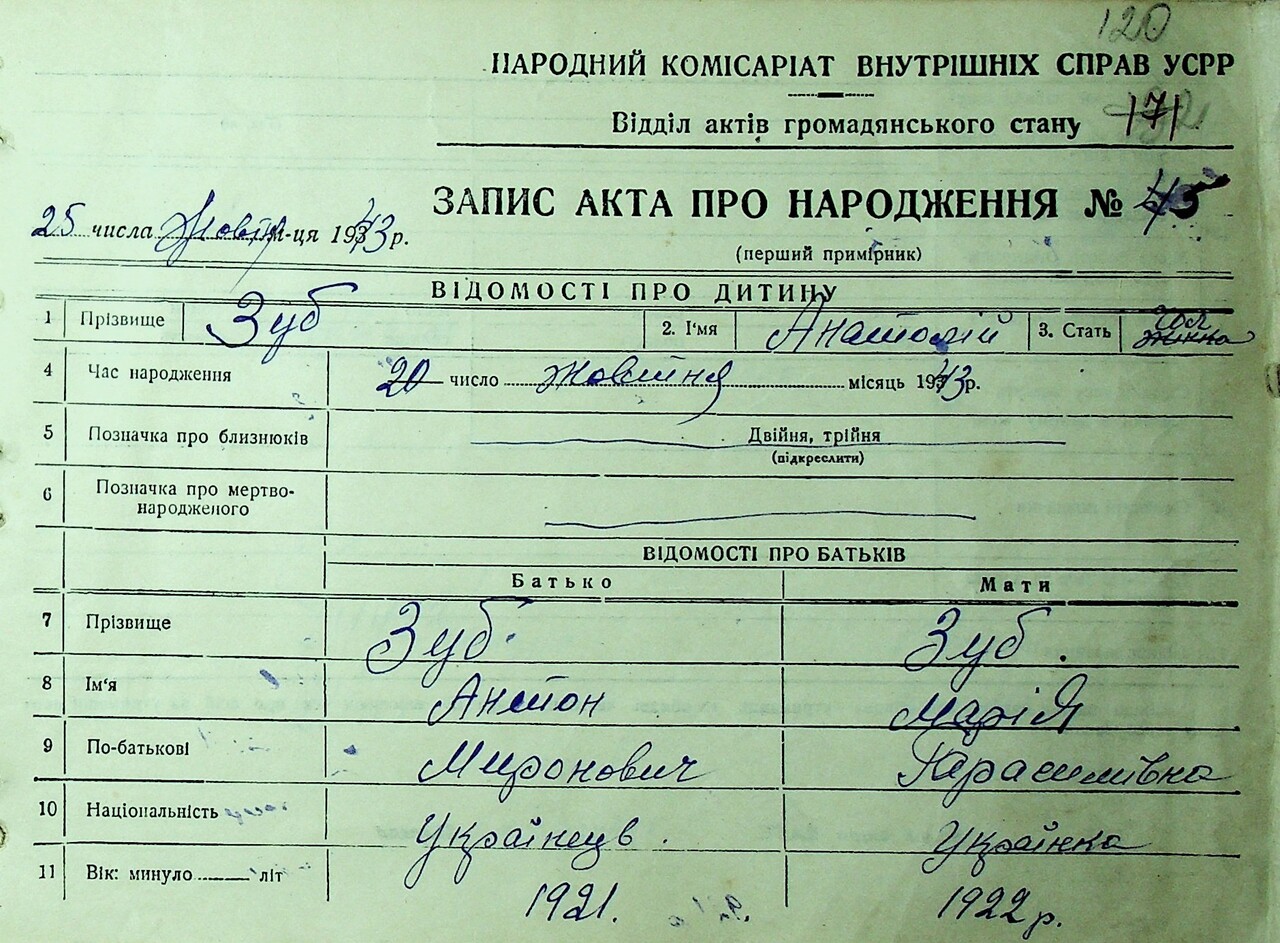 120
НАРОДНИЙ КОМІСАРІАТ ВНУТРІШНІХ СПРАВ УСРР
Відділ актів громадянського стану 171
ЗАПИС АКТА ПРО НАРОДЖЕННЯ № 45
25 числа Жовтн м-ця 1943 р.
(перший примірник)
ВІДОМОСТІ ПРО ДИТИНУ
1 Прізвище Зуб 2. І'мя Анатолій 3. Стать
4 Час народження 20 число Жовтня місяць 1943 р.
5 Позначка про близнюків Двійня, трійня
(підкреслити)
6 Позначка про мертво-
народженого
ВІДОМОСТІ ПРО БАТЬКІВ
Батько Мати
7 Прізвище Зуб Зуб.
8 Ім'я Антон Марія
9 По-батькові Миронович Герасимівна
10 Національність Українець. Українка
11 Вік: минуло літ 1921. 1922 р.